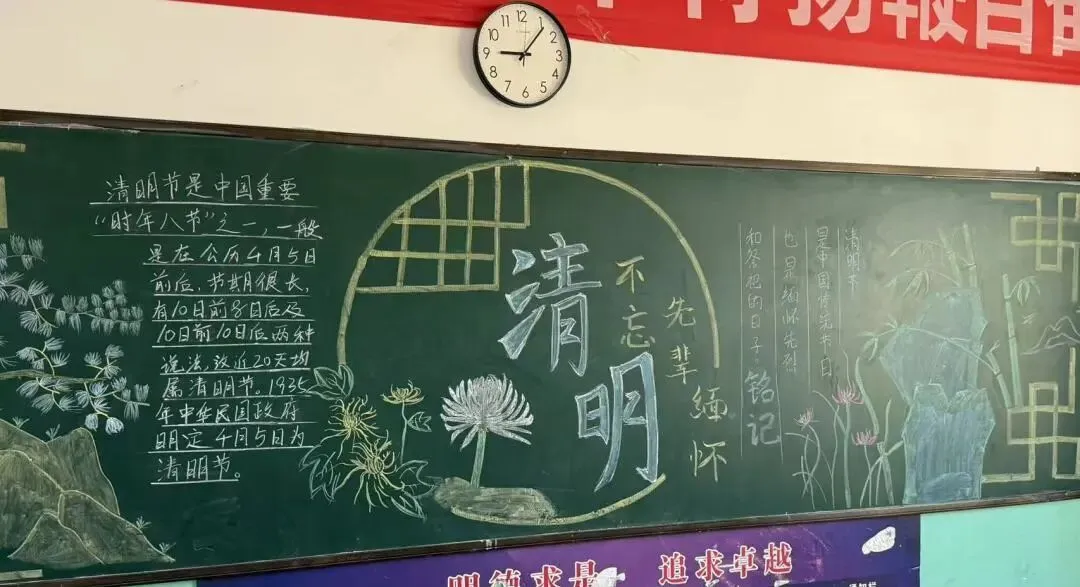 报
清明节是中国重要
“时年八节”之一，一般
是在公历4月5日
前后，节期很长，
有10日前8日后及
10日前10日后两种
说法，这近20天均
属清明节。1935
年中华民国政府
明定4月5日为
清明节。
清明
不忘
先辈
缅怀
清明节
是中国传统节日
也是缅怀先烈
和祭祀的日子.
铭记
12
1
2
3
4
5
6
7
8
9
10
11
明德求是 追求卓越
通知栏